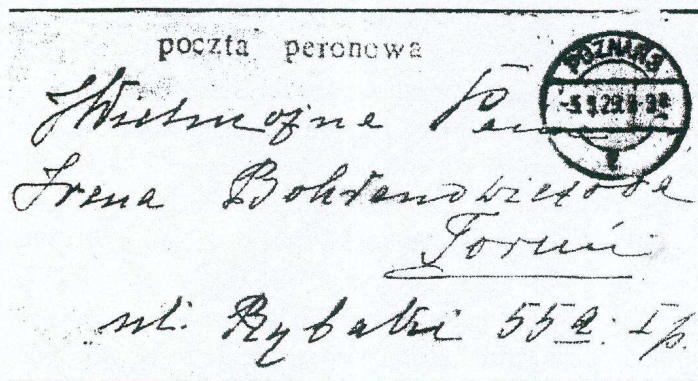 poczta peronowa
POZNAŃ 3
JWielmożna Pani
Irena Bohdanowiczowa
Toruń
ul. Rybaki 55a I p.